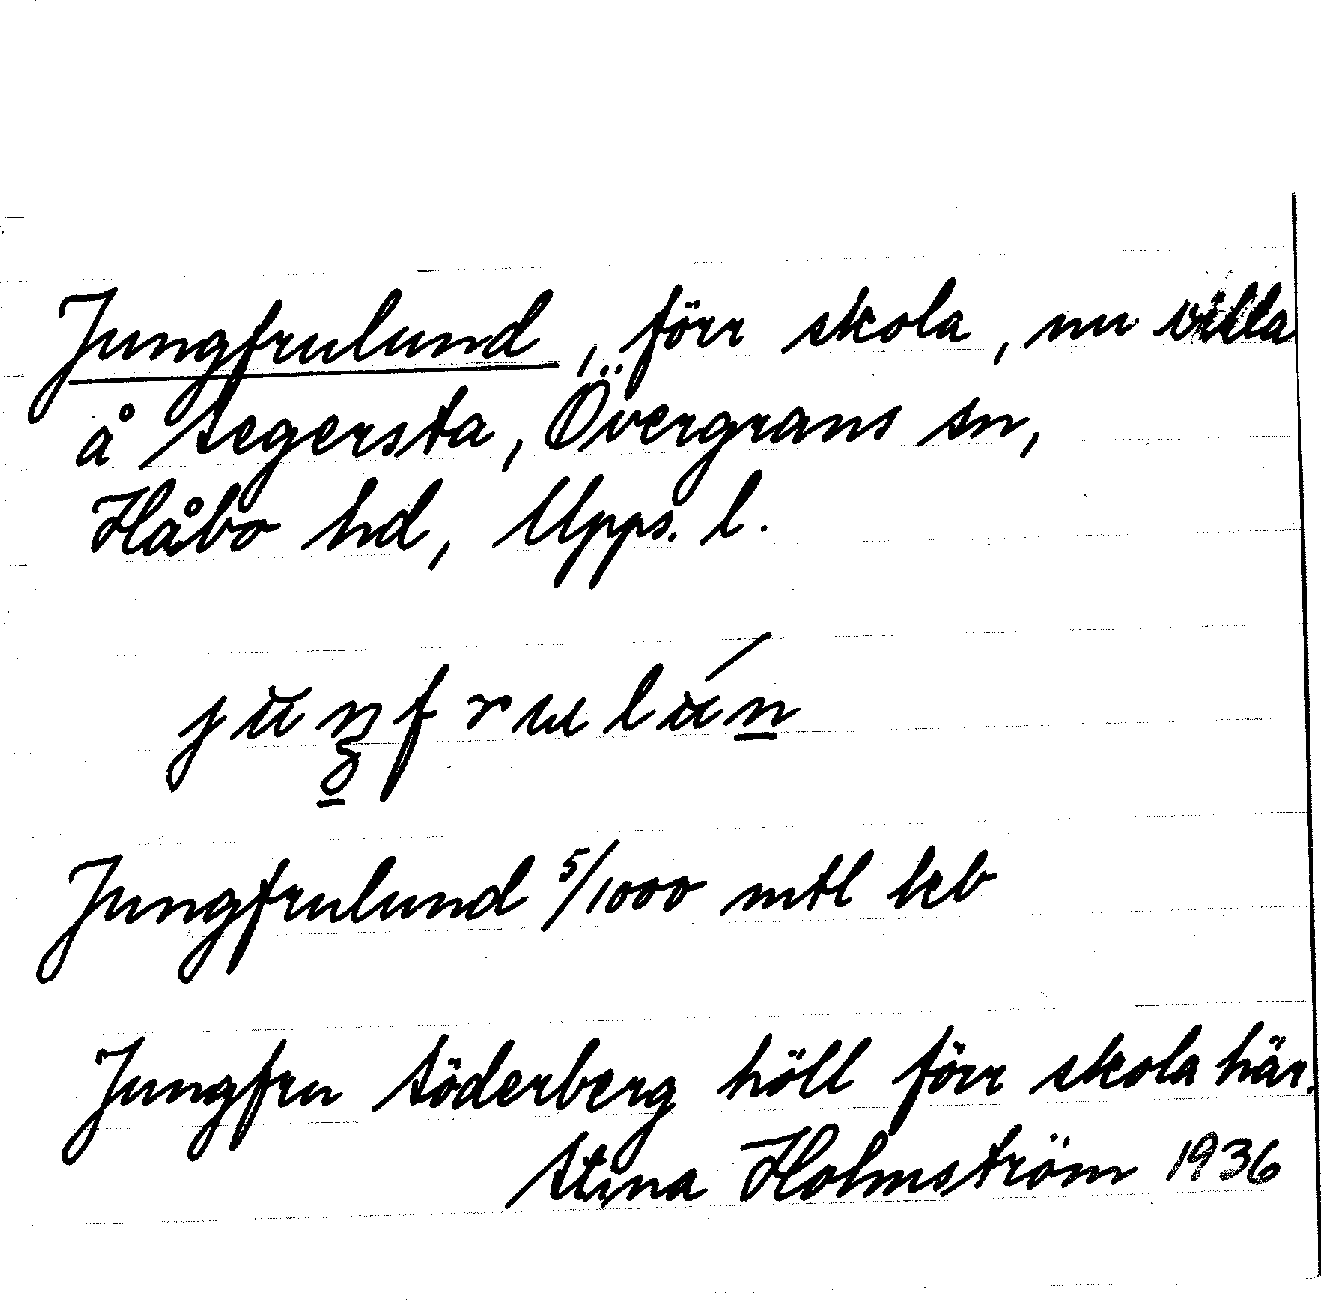 Jungfrulund, förr skola, nu villa
å Segersta, Övergrans sn,
Håbo hd, Upps. l.
Jungfrulund 5/1000 mtl skb
Jungfru Söderberg höll förr skola här.
Stina Holmström 1936